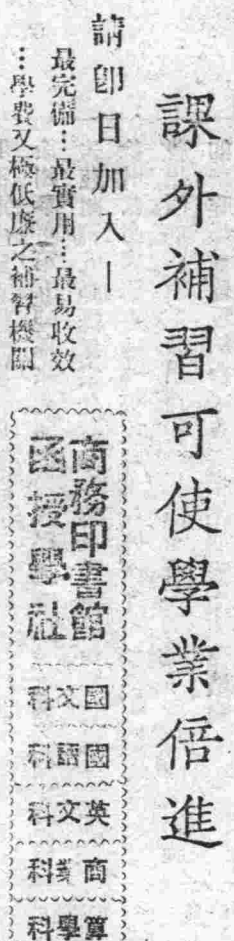 課外補習可使學業倍進
請即日加入—
最完備…最實用…最易收效
…學費又極低廉之補習機關
商務印書館
函授學社
國文科
國語科
英文科
商業科
算學科